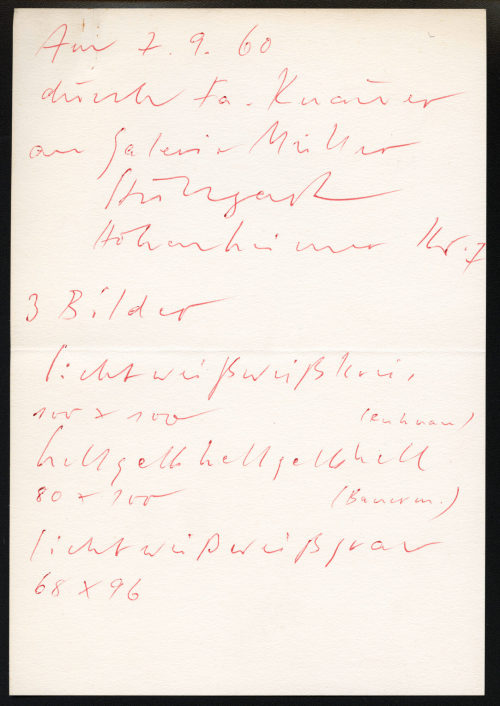 Am 7.9.60
durch Fa. Knauer
an Galerie Müller
Stuttgart
Hohenheimer Str. 7
3 Bilder
lichtweißweißkreis
100 x 100
hellgelbhellgelbhell
80 x 100 (Bauerm.)
lichtweißweißgrau
68 x 96